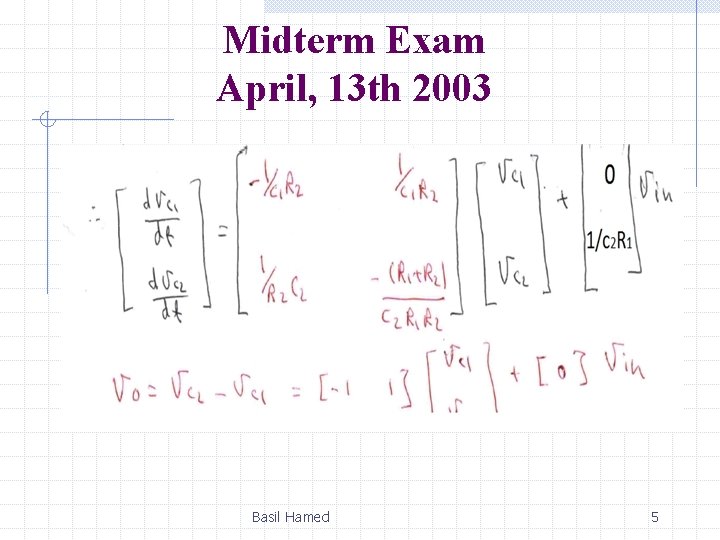 Midterm Exam
April, 13th 2003
∴ [dVc1/dt dVc2/dt] = [-1/c1R2 1/c1R2 1/R2C2 -(R1+R2)/C2R1R2] [Vc1 Vc2] + [0 1/c2R1] Vin
Vo = Vc2 - Vc1 = [-1 1] [Vc1 + [0] Vin
Basil Hamed 5